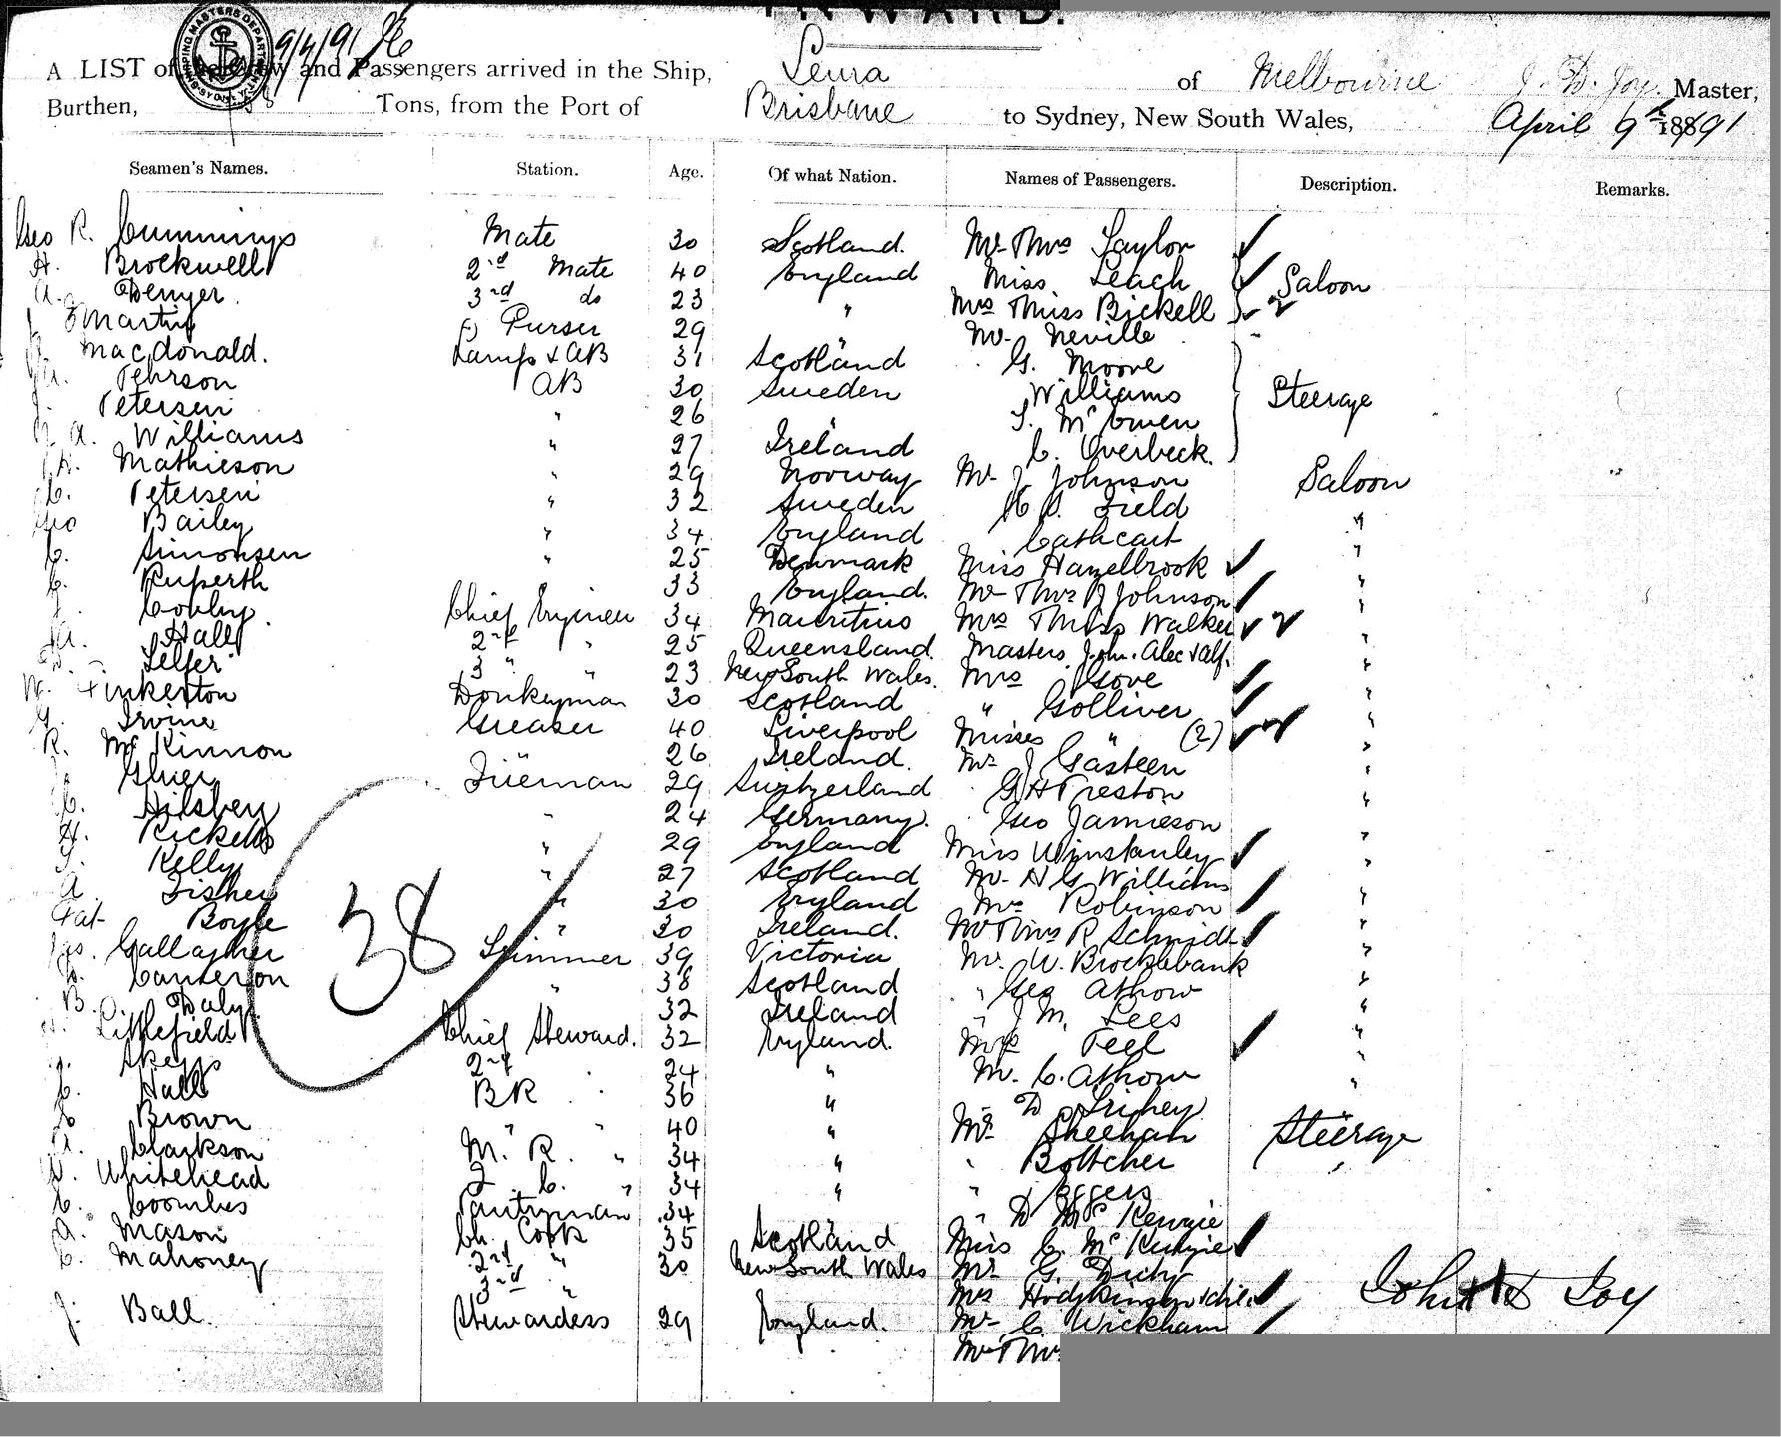 INWARD.
9/4/91
A LIST of the Crew and Passengers arrived in the Ship, Leura of Melbourne J. D. Joy. Master,
Burthen, Tons, from the Port of Brisbane to Sydney, New South Wales, April 9th 1891
Seamen's Names. Station. Age. Of what Nation. Names of Passengers. Description. Remarks.
Geo R. Cummings Mate 30 Scotland. Mr & Mrs Taylor
H. Brockwell 2nd Mate 40 England Miss Leach Saloon
A. Denyer. 3rd do 23 " Mrs & Miss Bickell
Martin Purser 29 " Mr. Neville
Macdonald. Lamps & AB 31 Scotland G. Moore
Pehrson AB 30 Sweden Williams Steerage
J. Petersen " 26 " McOwen
A. Williams " 27 Ireland C. Overbeck.
Mathieson " 29 Norway Mr J Johnson Saloon
C. Petersen " 32 Sweden Field "
Geo Bailey " 34 England Cathcart "
C. Simonsen " 25 Denmark Miss Hazelbrook "
C. Ruperth 33 England. Mr & Mrs J Johnson "
J. Chief Engineer 34 Mauritius Mrs & Miss Walker "
Hall 2nd " 25 Queensland. Masters John. Alec & Alf. "
Telfer 3 " " 23 New South Wales. Mrs Gove "
W. Pinkerton Donkeyman 30 Scotland " Golliver "
G. Irvine Greaser 40 Liverpool Misses " (2) "
R. McKinnon 26 Ireland. Mr J Gasteen "
Fireman 29 Switzerland G H Preston "
C. Hilsberg " 24 Germany. Geo Jamieson "
H. Ricketts " 29 England Miss Winstanley "
T. Kelly " 27 Scotland Mr H G Williams "
A Fisher " 30 England Mrs Robinson "
Pat Boyle " 30 Ireland. Mr & Mrs R Schmidt "
Jas. Gallagher Trimmer 39 Victoria Mr. W. Brocklebank "
Cameron " 38 Scotland " Geo Athow "
B. Daly 32 Ireland " J M. Lees "
Littlefield Chief Steward. 32 England. Mrs Peel "
Skeggs 2nd 24 " Mr. C. Athow "
C. Hall BR " 36 " D
Brown " " 40 " Mr Sheehan Steerage
A. Clarkson M. R. " 34 " " Bottcher "
W. Whitehead 2 C. " 34 " " Eggers
C. Coombes Pantryman 34 " D McKenzie
A. Mason Ch. Cook 35 Scotland Miss C. McKenzie
C. Mahoney 2nd " 30 New South Wales Mr G. Dichy
3rd " Mrs Hodgkinson & child
J. Ball. Stewardess 29 England. Mr C Wickham
Mr & Mrs
38
John D Joy